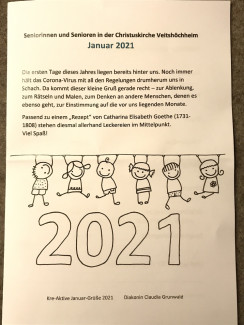 Seniorinnen und Senioren in der Christuskirche Veitshöchheim
Januar 2021
Die ersten Tage dieses Jahres liegen bereits hinter uns. Noch immer
hält das Corona-Virus mit all den Regelungen drumherum uns in
Schach. Da kommt dieser kleine Gruß gerade recht – zur Ablenkung,
zum Rätseln und Malen, zum Denken an andere Menschen, denen es
ebenso geht, zur Einstimmung auf die vor uns liegenden Monate.
Passend zu einem „Rezept“ von Catharina Elisabeth Goethe (1731-
1808) stehen diesmal allerhand Leckereien im Mittelpunkt.
Viel Spaß!
2021
Ihre Aktive Januar-Grüße 2021 Diakonin Claudia Grunwald